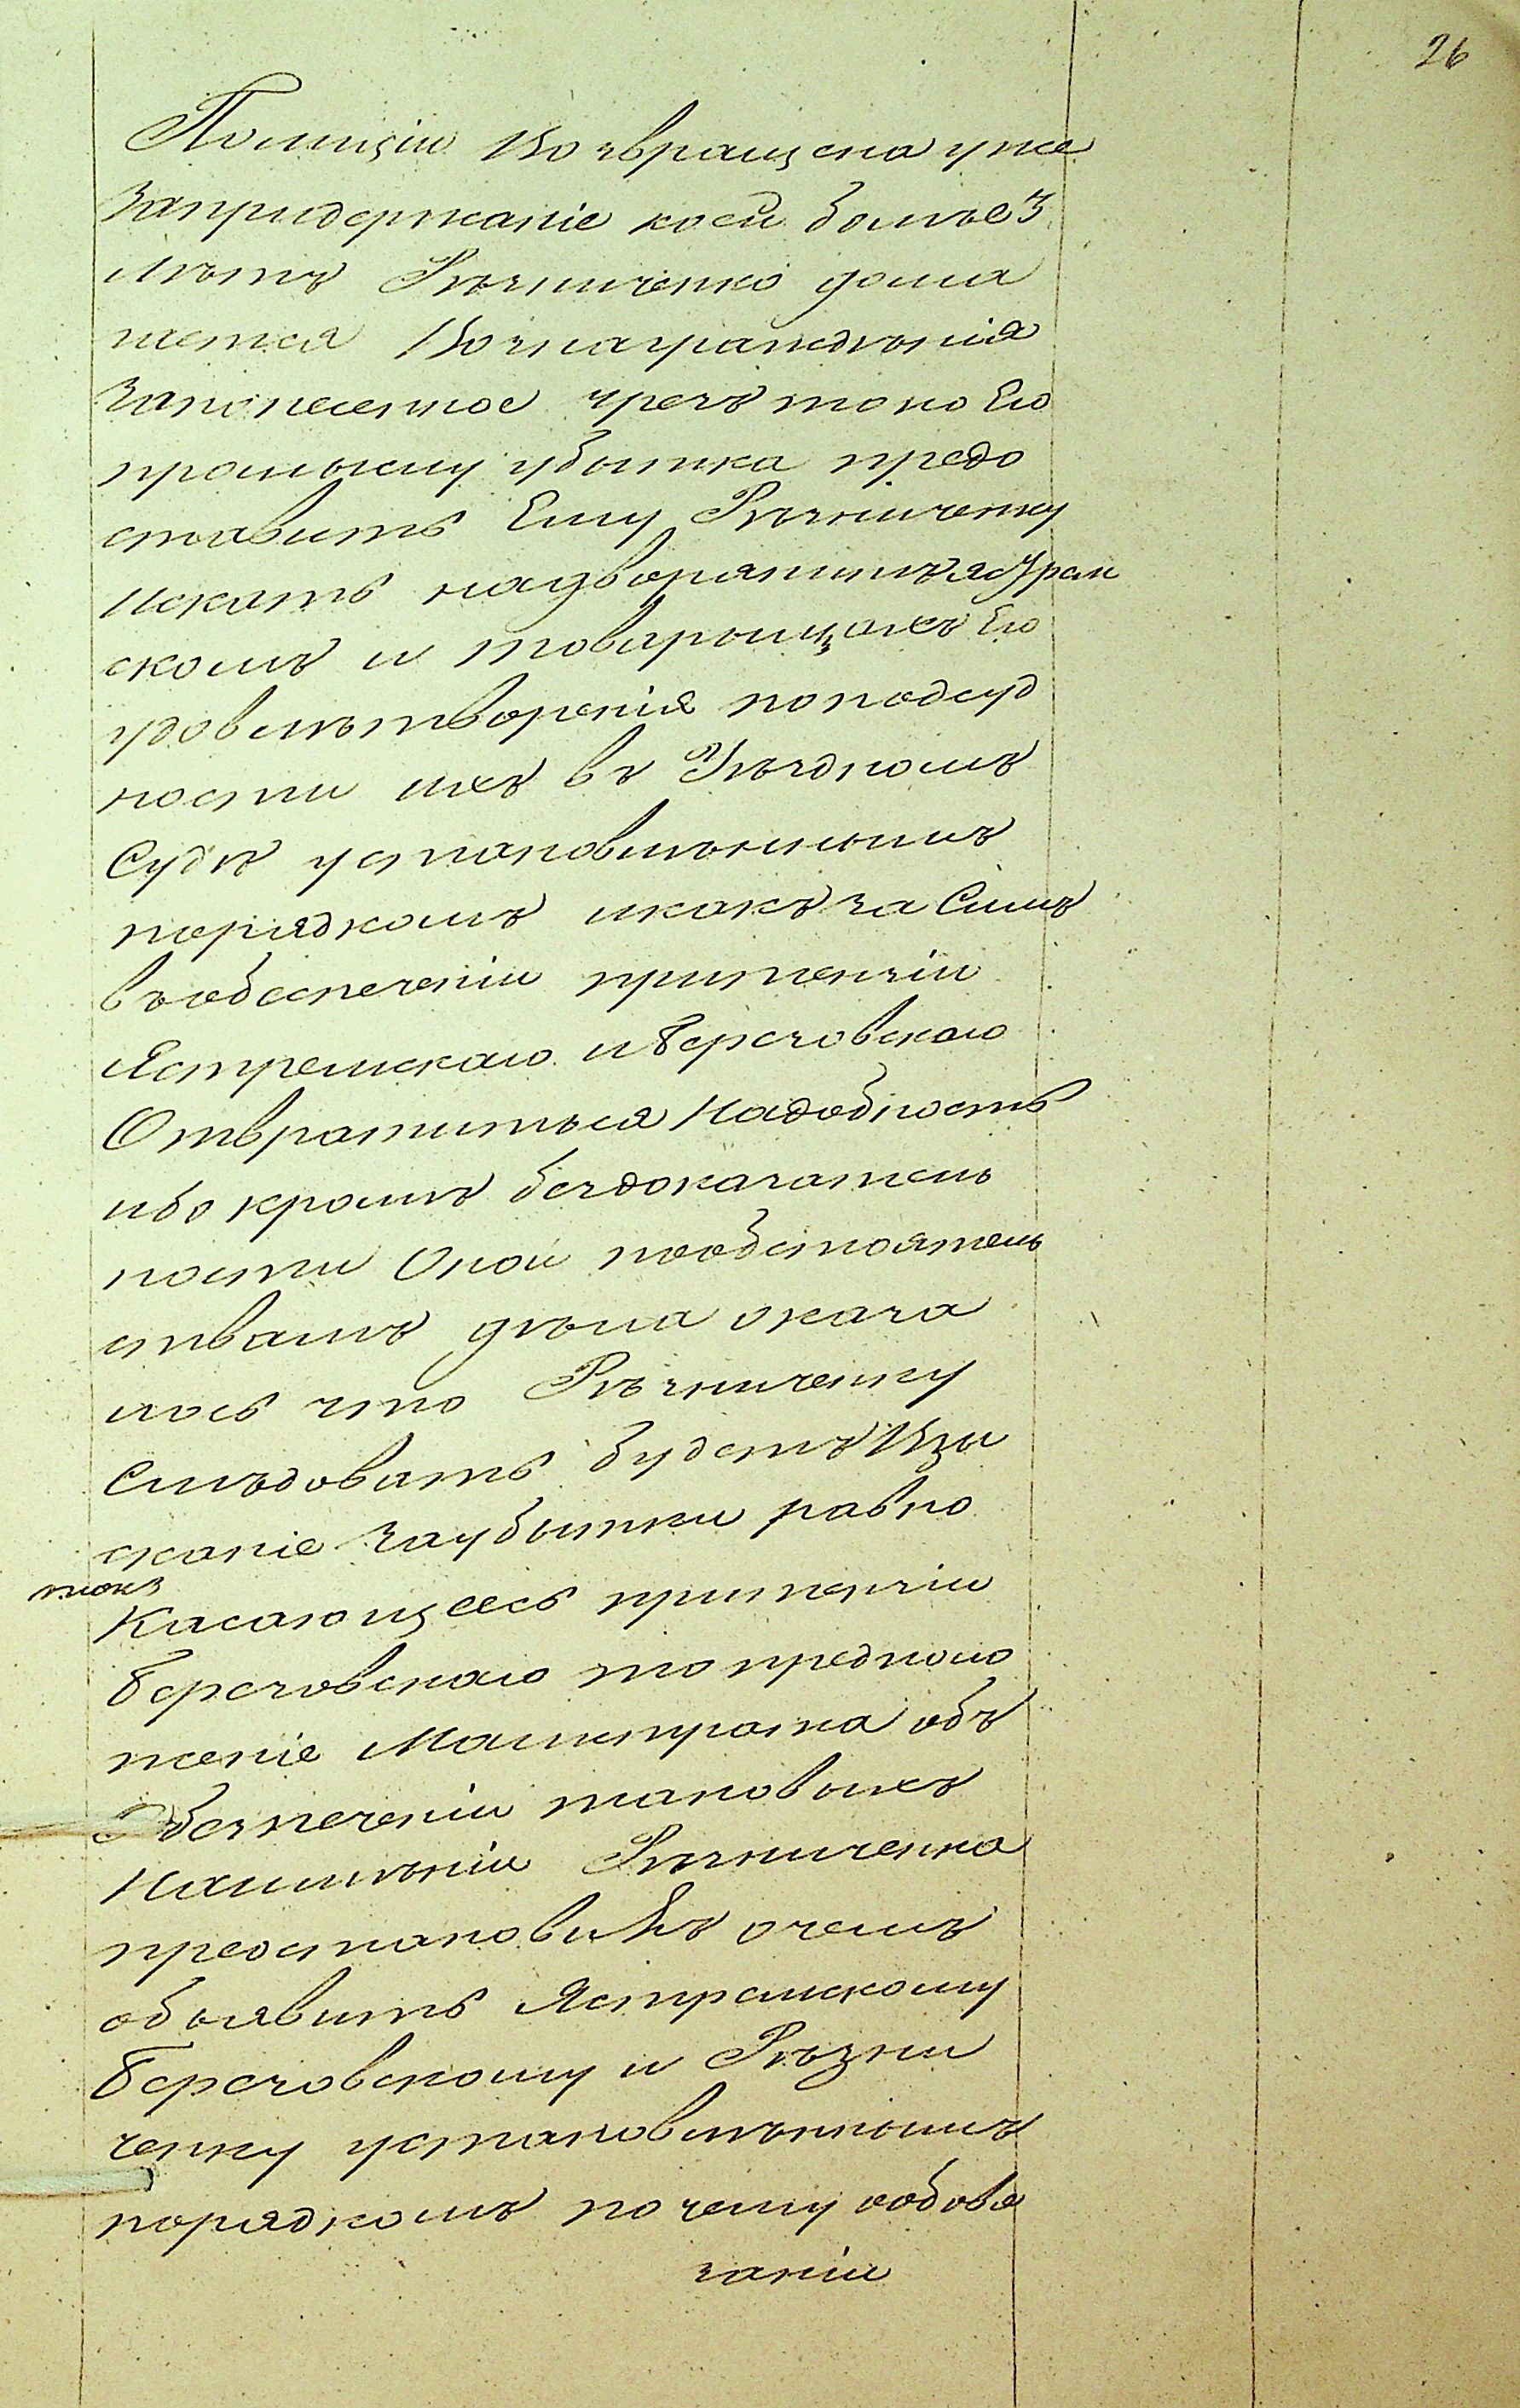 26
Полиціи Возвращена уже
запридержаніе коей болѣе 3
лѣтъ Рѣзниченко дома
гается Вознагражденія
запонесенное чрезъ то по Его
промыслу убытка предо
ставить Ему Рѣзниченку
искать надворянинѣ Ястрем
скомъ и товарыщахъ Его
удовлѣтворенія поподсуд
ности ихъ въ Уѣздномъ
Судѣ установлѣннымъ
порядкомъ икакъ за Симъ
въобеспеченіи притензіи
Ястремскаго и Березовскаго
Отвратиться надобность
ибо кромѣ бездоказатель
ности Оной пообстоятель
ствамъ дѣла оказа
лось что Рѣзниченку
Слѣдовать будетъ Взы
сканіе заубытки равно
такъ
Касающеесь притензіи
Березовскаго то предполо
женіе Магистрата объ
Обезпеченіи таковыхъ
Наимѣніи Рѣзниченка
преостановить очемъ
объявить Ястремскому
Березовскому и Рѣзни
ченку установлѣннымъ
порядкомъ почему ообовя
заніи